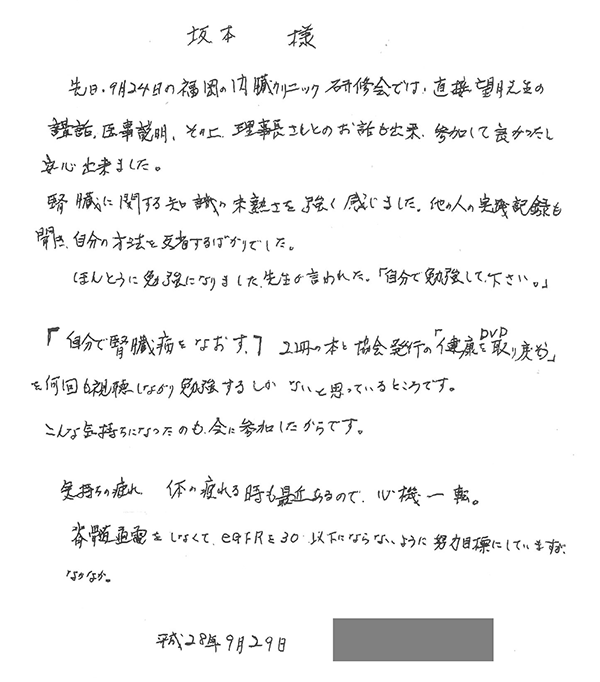 坂本 様
先日、9月24日の福岡の内臓クリニック研修会では、直接望月先生の
講話、医事説明、その上、理事長さんとのお話も出来、参加して良かったし
安心出来ました。
腎臓に関する知識の未熟さを強く感じました。他の人の実践記録も
聞き、自分の方法を反省するばかりでした。
ほんとうに勉強になりました。先生が言われた。「自分で勉強して下さい。」
『自分で腎臓病をなおす』2冊の本と協会発行の「健康を取り戻そう」DVD
を何回も視聴しながり勉強するしかないと思っているところです。
こんな気持ちになったのも、会に参加したからです。
気持ちの疲れ 体の疲れる時も最近あるので、心機一転。
脊髄通電をしなくて、eGFRを30以下にならないように努力目標にしていますが、
なかなか。
平成28年9月29日